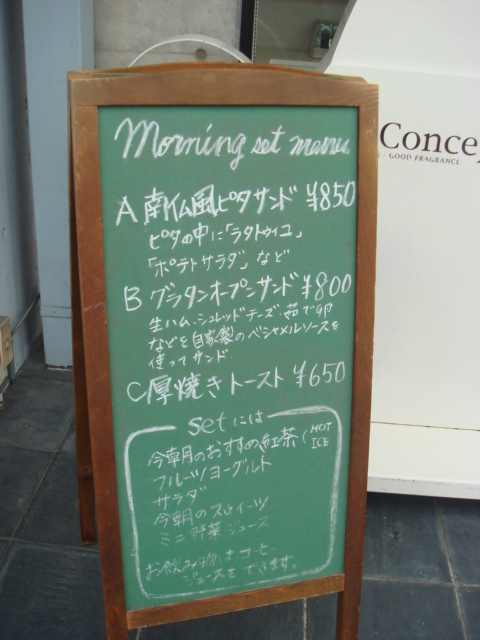 Morning set menu
A 南仏風ピタサンド ¥850
ピタの中に「ラタトゥイユ」
「ポテトサラダ」など
B グラタンオープンサンド ¥800
生ハム・シュレッドチーズ・茹で卵
などを自家製のベシャメルソースを
使ってサンド
C 厚焼きトースト ¥650
setには
今朝のおすすめ紅茶 (HOT
ICE
フルーツヨーグルト
サラダ
今朝のスウィーツ
ミニ野菜ジュース
お飲み物はコーヒー
ジュースもできます。
Conce
GOOD FRAGRANCE